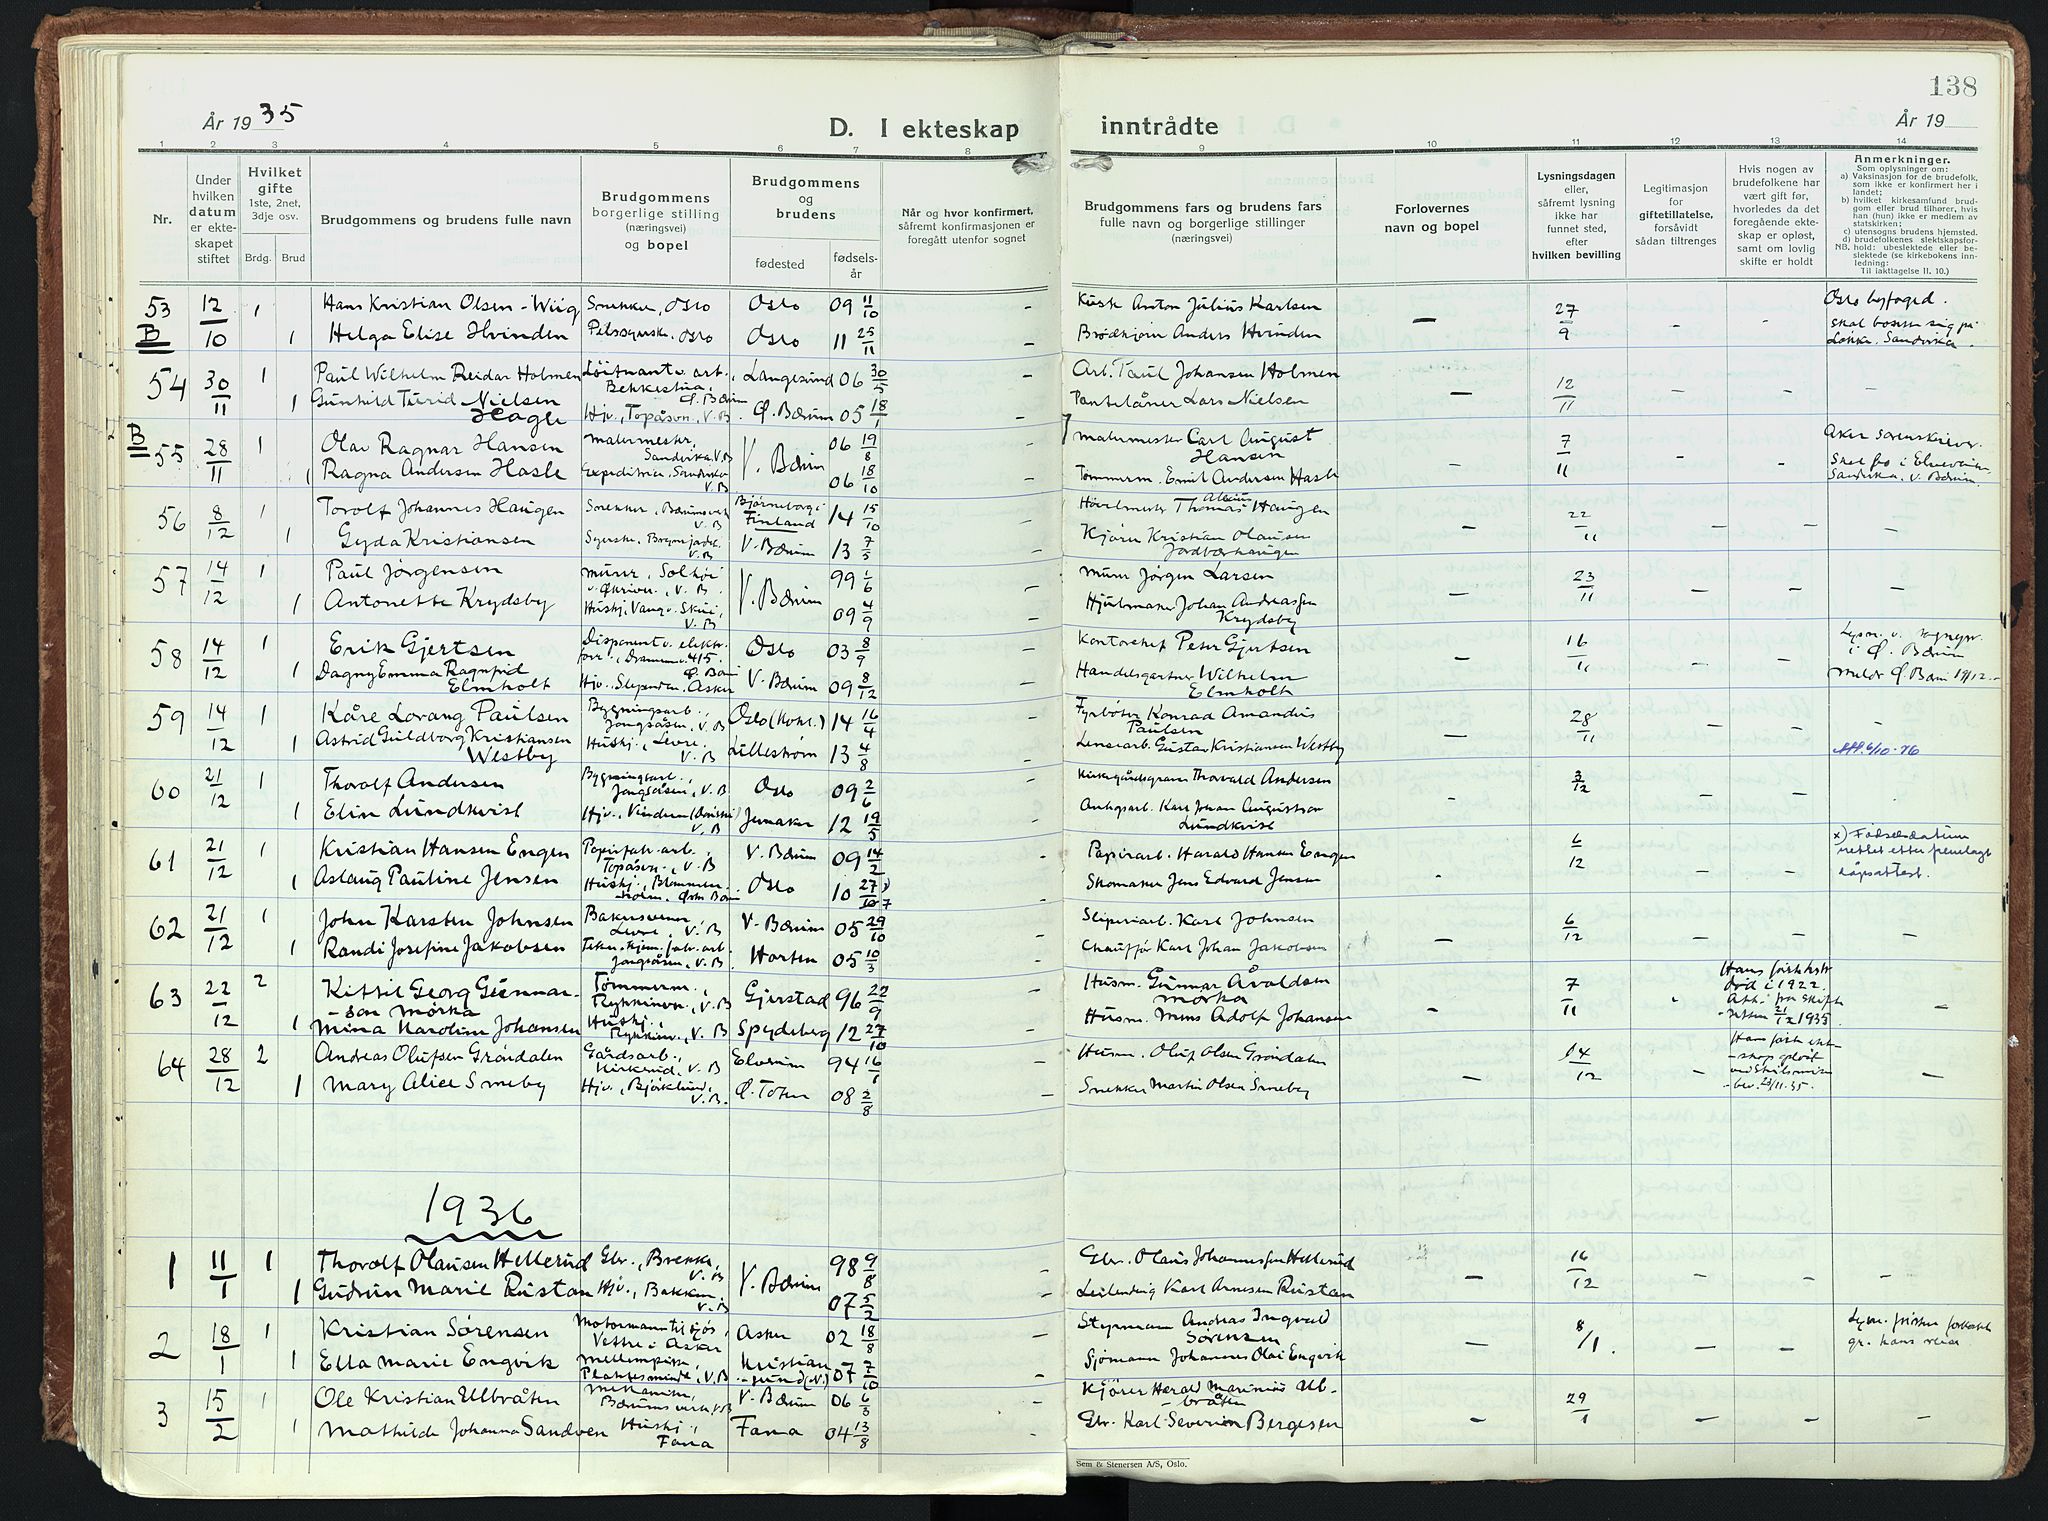 138
År 1935
D. I ekteskap inntrådte
År 19
1 2 3 4 5 6 7 8 9 10 11 12 13 14
Nr.
Under hvilken datum er ekteskapet stiftet
Hvilket gifte 1ste, 2net, 3dje osv.
Brdg. Brud
Brudgommens og brudens fulle navn
Brudgommens borgerlige stilling (næringsvei) og bopel
Brudgommens og brudens
fødested
fødselsår
Når og hvor konfirmert, såfremt konfirmasjonen er foregått utenfor sognet
Brudgommens fars og brudens fars fulle navn og borgerlige stillinger (næringsvei)
Forlovernes navn og bopel
Lysningsdagen eller, såfremt lysning ikke har funnet sted, efter hvilken bevilling
Legitimasjon for giftetillatelse, forsåvidt sådan tiltrenges
Hvis nogen av brudefolkene har vært gift før, hvorledes da det foregående ekteskap er opløst, samt om lovlig skifte er holdt
Anmerkninger.
Som oplysninger om:
a) Vaksinasjon for de brudefolk, som ikke er konfirmert her i landet;
b) hvilket kirkesamfund brudgom eller brud tilhører, hvis han (hun) ikke er medlem av statskirken;
c) utensogns brudens hjemsted.
d) brudefolkenes slektskapsforhold: ubeslektede eller beslektede (se kirkebokens innledning:
NB.
Til iakttagelse II. 10.)
53 12/10 1 Hans Kristian Olsen-Wiig Snekker, Oslo Oslo 09 11/10 - Kusk Anton Julius Karlsen - 27/9 - - Oslo byfoged.
B 1 Helga Elise Hvinden Pelssyerske, Oslo Oslo 11 25/11 - Brødkjører Anders Hvinden skal bosette sig på Løkke, Sandvika.
54 30/11 1 Paul Wilhelm Reidar Holmen Bekkestua, Ø. Bærum Langesund 06 30/5 - Arb. Paul Johansen Holmen - 12/11 - - -
1 Gunhild Turid Nielsen Hagle Hjv., Topåsen, V.B. Ø. Bærum 05 18/1 - Pantelåner Lars Nielsen
B 55 28/11 1 Olav Ragnar Hansen Malermester, Sandvika, V.B V. Bærum 06 19/8 - Malermester Carl August Hansen - 7/11 - - Aker sorenskriver.
1 Ragna Andersen Hasle Sandvika V.B 06 18/10 - Tømmerm. Emil Andersen Hasle Sandvika, V. Bærum.
56 8/12 1 Torolf Johannes Haugen Snekker, Bærumsverk V.B Bjørneborg i Finland 14 15/10 - Thomas Alexius Haugen - 22/11 - - -
1 Gyda Kristiansen Syerske, V.B V. Bærum 13 7/5 - Kjører Kristian Olausen Jordbærhaugen
57 14/12 1 Paul Jørgensen Murer, Solhøi V.B. V. Bærum 99 1/6 - Murer Jørgen Larsen - 23/11 - - -
1 Antonette Krydsby Hushj., V.B 09 4/9 Hjulmaker Johan Andreassen Krydsby
58 14/12 1 Erik Gjertsen Disponent v. elektr. Drammensv. 415. Ø. Bærum Oslo 03 8/9 - Kontorchef Peter Gjertsen - 16/11 - - Lysn. v. sognepr. i Ø. Bærum
1 Dagny Emma Ragnfrid Elmholt Hjv. Slependen, Asker V. Bærum 09 8/12 Handelsgartner Wilhelm Elmholt
59 14/12 1 Kåre Lorang Paulsen Bygningsarb., Jongsåsen, V.B Oslo 14 16/4 - Fyrbøter Konrad Amandus Paulsen - 28/11 - - -
1 Astrid Guldborg Kristiansen Westby Hushj., Levre, V.B Lillestrøm 13 4/8 Lensearb. Gustav Kristiansen Westby
60 21/12 1 Thorolf Andersen Bygningsarb., Jongsåsen, V.B Oslo 09 2/6 - Kirkegårdsgraver Thorvald Andersen - 3/12 - -
1 Elin Lundkvist Hjv., V.B Jevnaker 12 19/5 Karl Johan Augustson Lundkvist
61 21/12 1 Kristian Hansen Engen Papirfabr. arb., Topåsen, V.B V. Bærum 09 14/2 - Papirarb. Harald Hansen Engen - 6/12 - - x) Fødselsdatum rettet etter fremlagt dåpsattest.
1 Aslaug Pauline Jensen Hushj., Oslo 10 27/7 Skomaker Jens Edvard Jensen
62 21/12 1 John Karsten Johnsen Bakersvenn, Levre, V.B V. Bærum 05 29/10 - Sliperiarb. Karl Johnsen - 6/12 - - -
1 Randi Josefine Jakobsen Jongsåsen, V.B. Horten 05 10/3 - Chauffør Karl Johan Jakobsen
63 22/12 2 Kittil Georg Gunnarson Mørka Tømmerm., Rykkinn, V.B Gjerstad 96 22/9 - Husm. Gunnar Åvaldsen Mørka - 7/11 - Hans første hstr død i 1922. Att. fra skifteretten 21/12 1935 -
1 Mina Karoline Johansen Hushj., Rykkinn, V.B Spydeberg 12 27/10 Husm. Mins Adolf Johansen
64 28/12 2 Andreas Olufsen Grøndalen Gårdsarb., Kirkerud, V.B Elverum 94 16/1 - Husm. Oluf Olsen Grøndalen - 14/12 - Hans første ekteskap opløst ved skilsmisse bev. 23/11.35. -
1 Mary Alice Smeby Hjv., Bjørklund, V.B. Ø. Toten 08 2/8 - Snekker Martin Olsen Smeby
1936
1 11/1 1 Thorolf Olausen Hellerud Gbr., Brekke, V.B V. Bærum 98 9/8 Gbr. Olaus Johannessen Hellerud - 16/12 - - -
1 Gudrun Marie Rustan Hjv., Bakken, V.B 07 5/2 Leilending Karl Arnesen Rustan
2 18/1 1 Kristian Sørensen Motormann til sjøs, Vettre i Asker Asker 02 18/8 Styrmann Andreas Ingvald Sørensen - 8/1. - - Lysn. fristen forkortet gr. hans reise
1 Ella Marie Engvik V.B Kristiansund (N.) 07 7/10 - Sjømann Johannes Olai Engvik
3 15/2 1 Ole Kristian Ulbråten Mekaniker, Bærumsverk, V.B V. Bærum 06 6/3 - Kjører Harald Marinius Ulbråten - 29/1 - - -
1 Mathilde Johanna Sandven Hushj., Fana Fana 04 13/8 - Gbr. Karl Severin Bergesen
Sem & Stenersen A/S, Oslo.